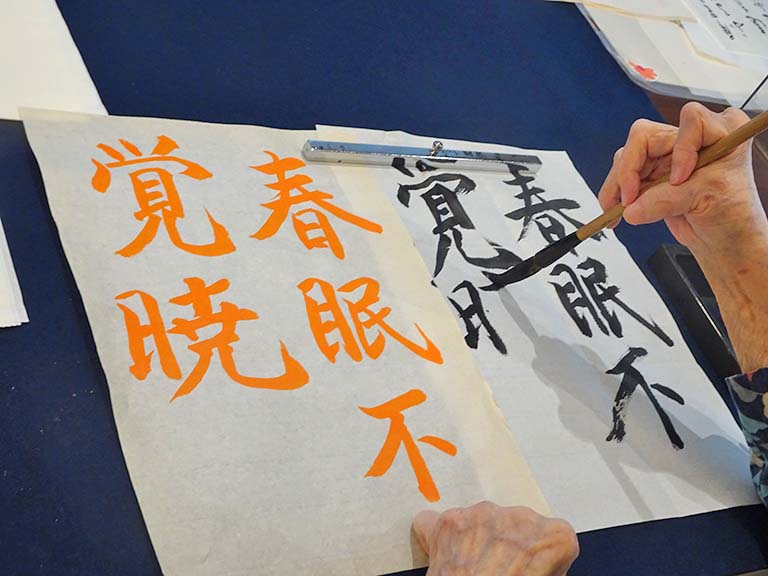 春眠不
覚暁
春眠不
覚日